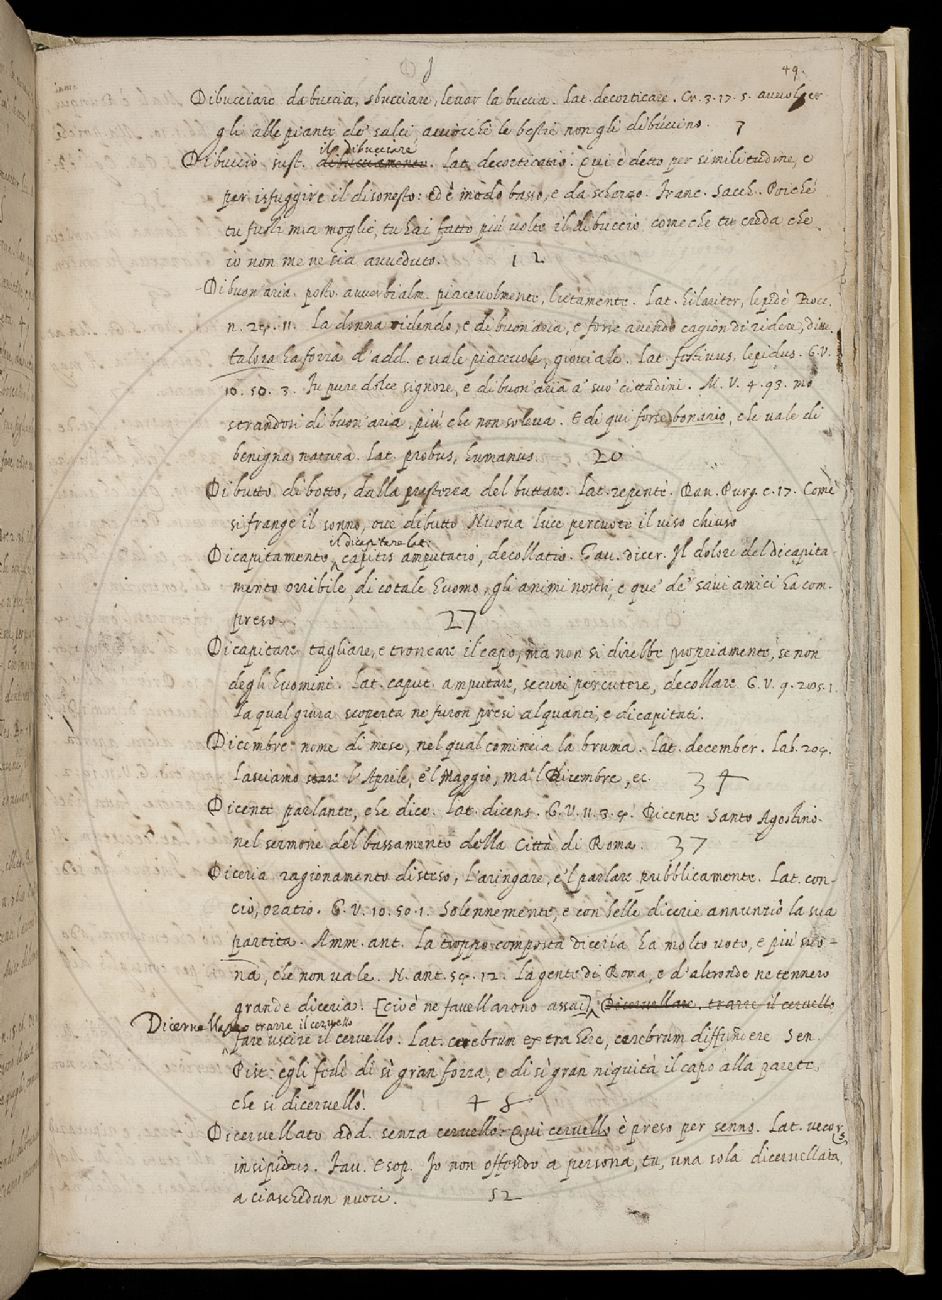 D
49.
Dibucciare da buccia, sbucciare, levar la buccia. Lat. decorticare. Cr. 3. 17. 5. avvolger
gli alle piante de' salci, acciocchè le bestie non gli dibuccino. 7
il dibucciare
Dibuccio sust. dibucciamento. Lat. decorticatio. Qui è detto per similitudine, e
per isfuggire il disonesto: ed è modo basso, e da scherzo. Franc. Sacch. Poiché
tu fusti mia moglie, tu hai fatto più volte il dibuccio, come che tu creda che
io non me ne sia avveduto. 12
Di buon'aria. posto avverbialm. piacevolmente, lietamente. Lat. hilariter, lepidè Bocc.
n. 24. 11. La donna ridendo, e di buon'aria, e forse avendo cagion di ridere, disse.
talora ha forza d'add. e vale piacevole, gioviale. Lat. festivus, lepidus. G.V.
10. 50. 3. Fu pure dolce signore, e di buon'aria a' suo' cittadini. M. V. 4. 93. mo
strandosi di buon'aria, più che non soleva. E di qui forse bonario, che vale di
benigna natura. Lat. probus, humanus. 20
Dibutto di botto, dalla prestezza del buttare. Lat. repentè. Dan. Purg. c. 17. Come
si frange il sonno, ove di butto Nuova luce percuote il viso chiuso
il dicapitare lat.
Dicapitamento, capitis amputatio, decollatio. Fav. dicer. Il dolore del dicapita-
mento orribile, di cotale huomo, gli animi nostri, e que' de' savi amici ha com-
preso. 27
Dicapitare tagliare, e troncare il capo, ma non si direbbe propriamente, se non
degli huomini. Lat. caput amputare, securi percutere, decollare G. V. 9. 205. 1.
La qual giura scoperta ne furon presi alquanti, e dicapitati.
Dicembre nome di mese, nel qual comincia la bruma. Lat. december. Lab. 204.
Lasciamo stare l'Aprile, e'l Maggio, ma'l Dicembre, ec. 34
Dicente parlante, che dice. Lat. dicens. G. V. 11. 3. 4. Dicente Santo Agostino
nel sermone del bassamento della Città di Roma. 37
Diceria ragionamento disteso, l'aringare, e'l parlare pubblicamente. Lat. con-
cio, oratio. G. V. 10. 50. 1. Solennemente, e con belle dicerie annunziò la sua
partita. Amm. ant. La troppo composta diceria ha molto voto, e più suo-
na, che non vale. N. ant. 54. 12. La gente di Roma, e d'altronde ne tennero
grande diceria. [cioè ne favellarono assai] Dicervellare, trarre il cervello
Dicervellare trarre il cervello
fare uscire il cervello. Lat. cerebrum extrahere, cerebrum diffundere Sen.
Pist. egli fedì di sì gran forza, e di sì gran niquità il capo alla parete,
che si dicervellò. 45
Dicervellato add. senza cervello: Qui cervello è preso per senno. Lat. vecors,
insipidus. Fav. Esop. Io non offendo a persona, tu, una sola dicervellata,
a ciaschedun nuoci. 52